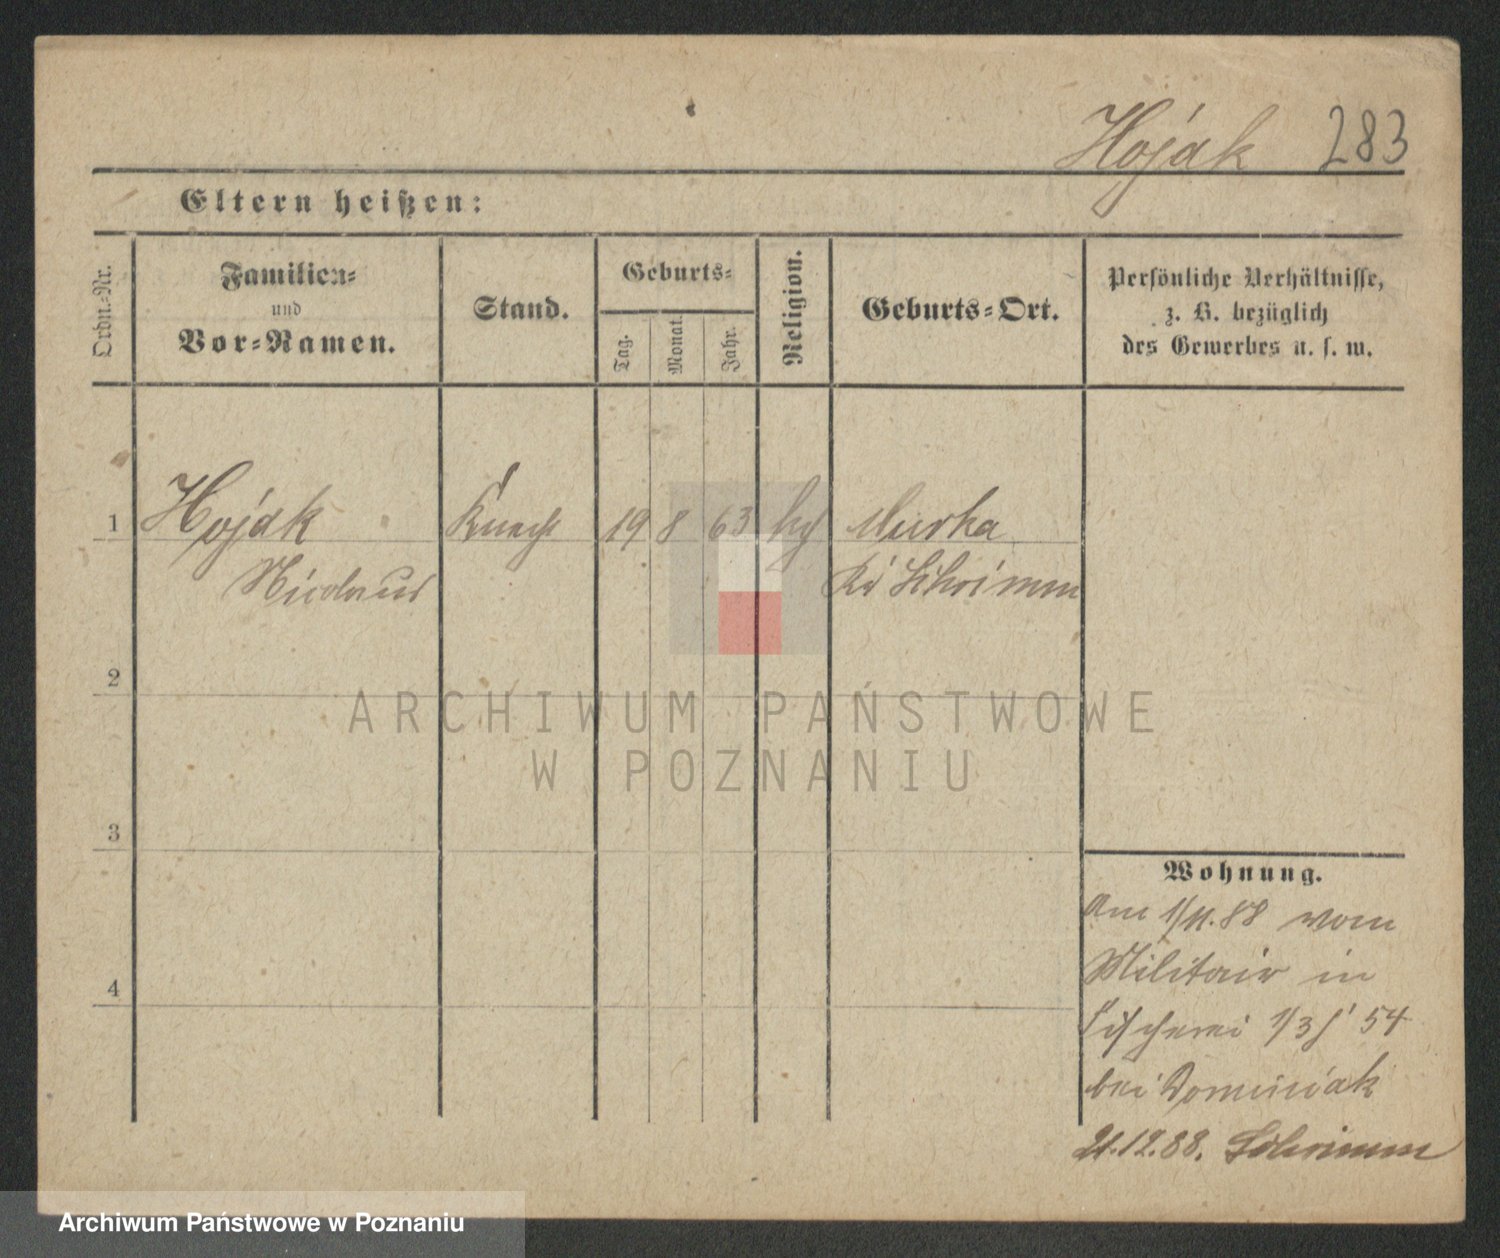 Hojak 283
Eltern heißen:
Ordn.-Nr.
Familien-
und
Vor-Namen.
Stand.
Geburts-
Tag.
Monat.
Jahr.
Religion.
Geburts-Ort.
Persönliche Verhältnisse,
z. B. bezüglich
des Gewerbes u. s. w.
1 Hojak Knecht 19 8 63 kth Murka
Nicolaus Kr Schrimm
2
3
4
Wohnung.
Am 1/11.88 vom
Militair in
Fischerei 1/3 54
bei Dominiak
21.12.88. Schrimm
ARCHIWUM PAŃSTWOWE
W POZNANIU
Archiwum Państwowe w Poznaniu